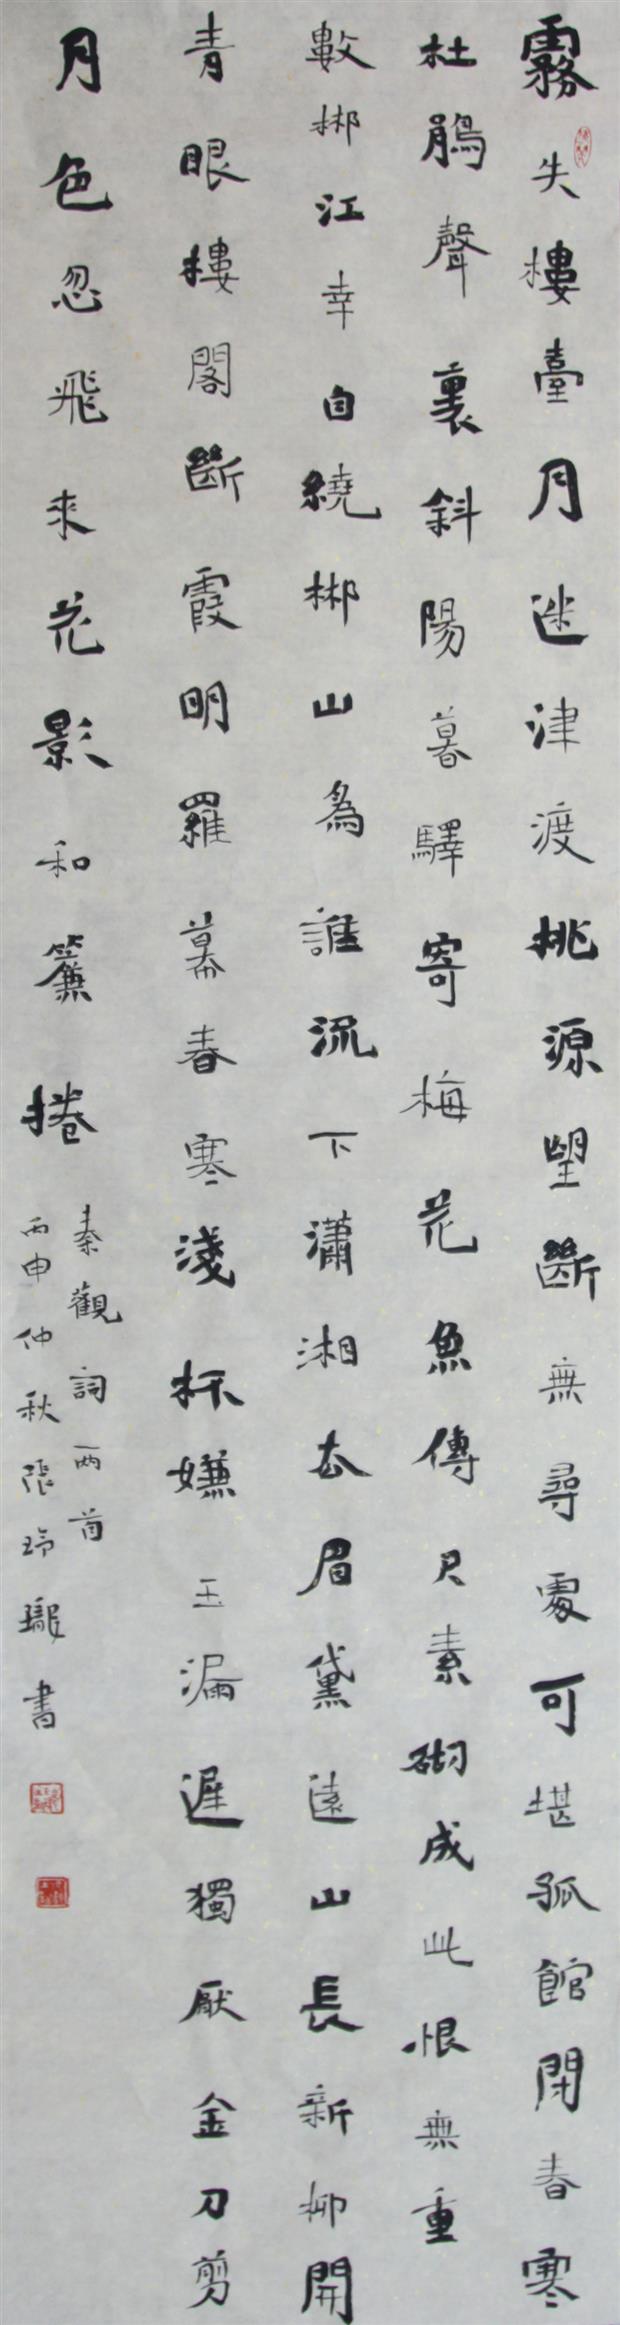 霧失樓臺月迷津渡桃源望斷無尋處可堪孤館閉春寒
杜鵑聲裏斜陽暮驛寄梅花魚傳尺素砌成此恨無重
數郴江幸自繞郴山為誰流下瀟湘去眉黛遠山長新柳開
青眼樓閣斷霞明羅幕春寒淺杯嫌玉漏遲獨厭金刀剪
月色忽飛來花影和簾捲
秦觀詞兩首
丙申仲秋張玲瓏書